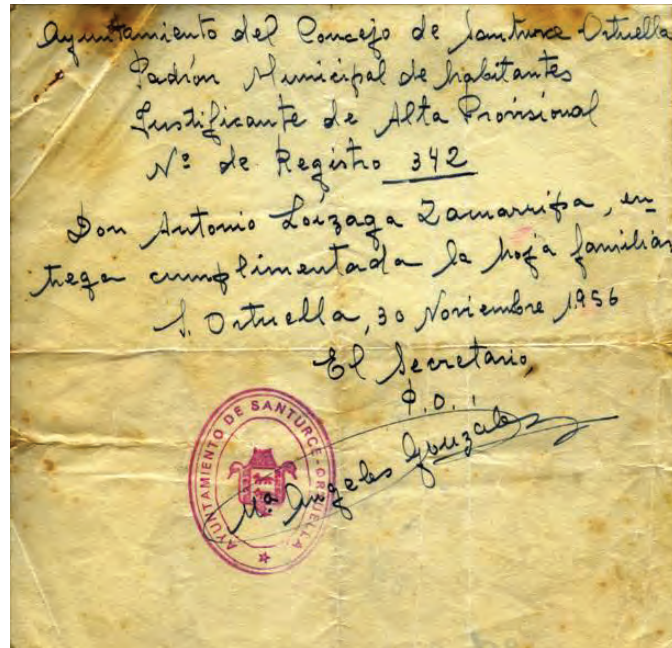 Ayuntamiento del Concejo de Santurce Ortuella
Padrón Municipal de habitantes
Justificante de Alta Provisional
Nº de Registro 342
Don Antonio Loizaga Zamarripa, en-
trega cumplimentada la hoja familiar
S. Ortuella, 30 Noviembre 1956
El Secretario,
P.O.:
Mª Angeles Gonzalez
AYUNTAMIENTO DE SANTURCE-ORTUELLA